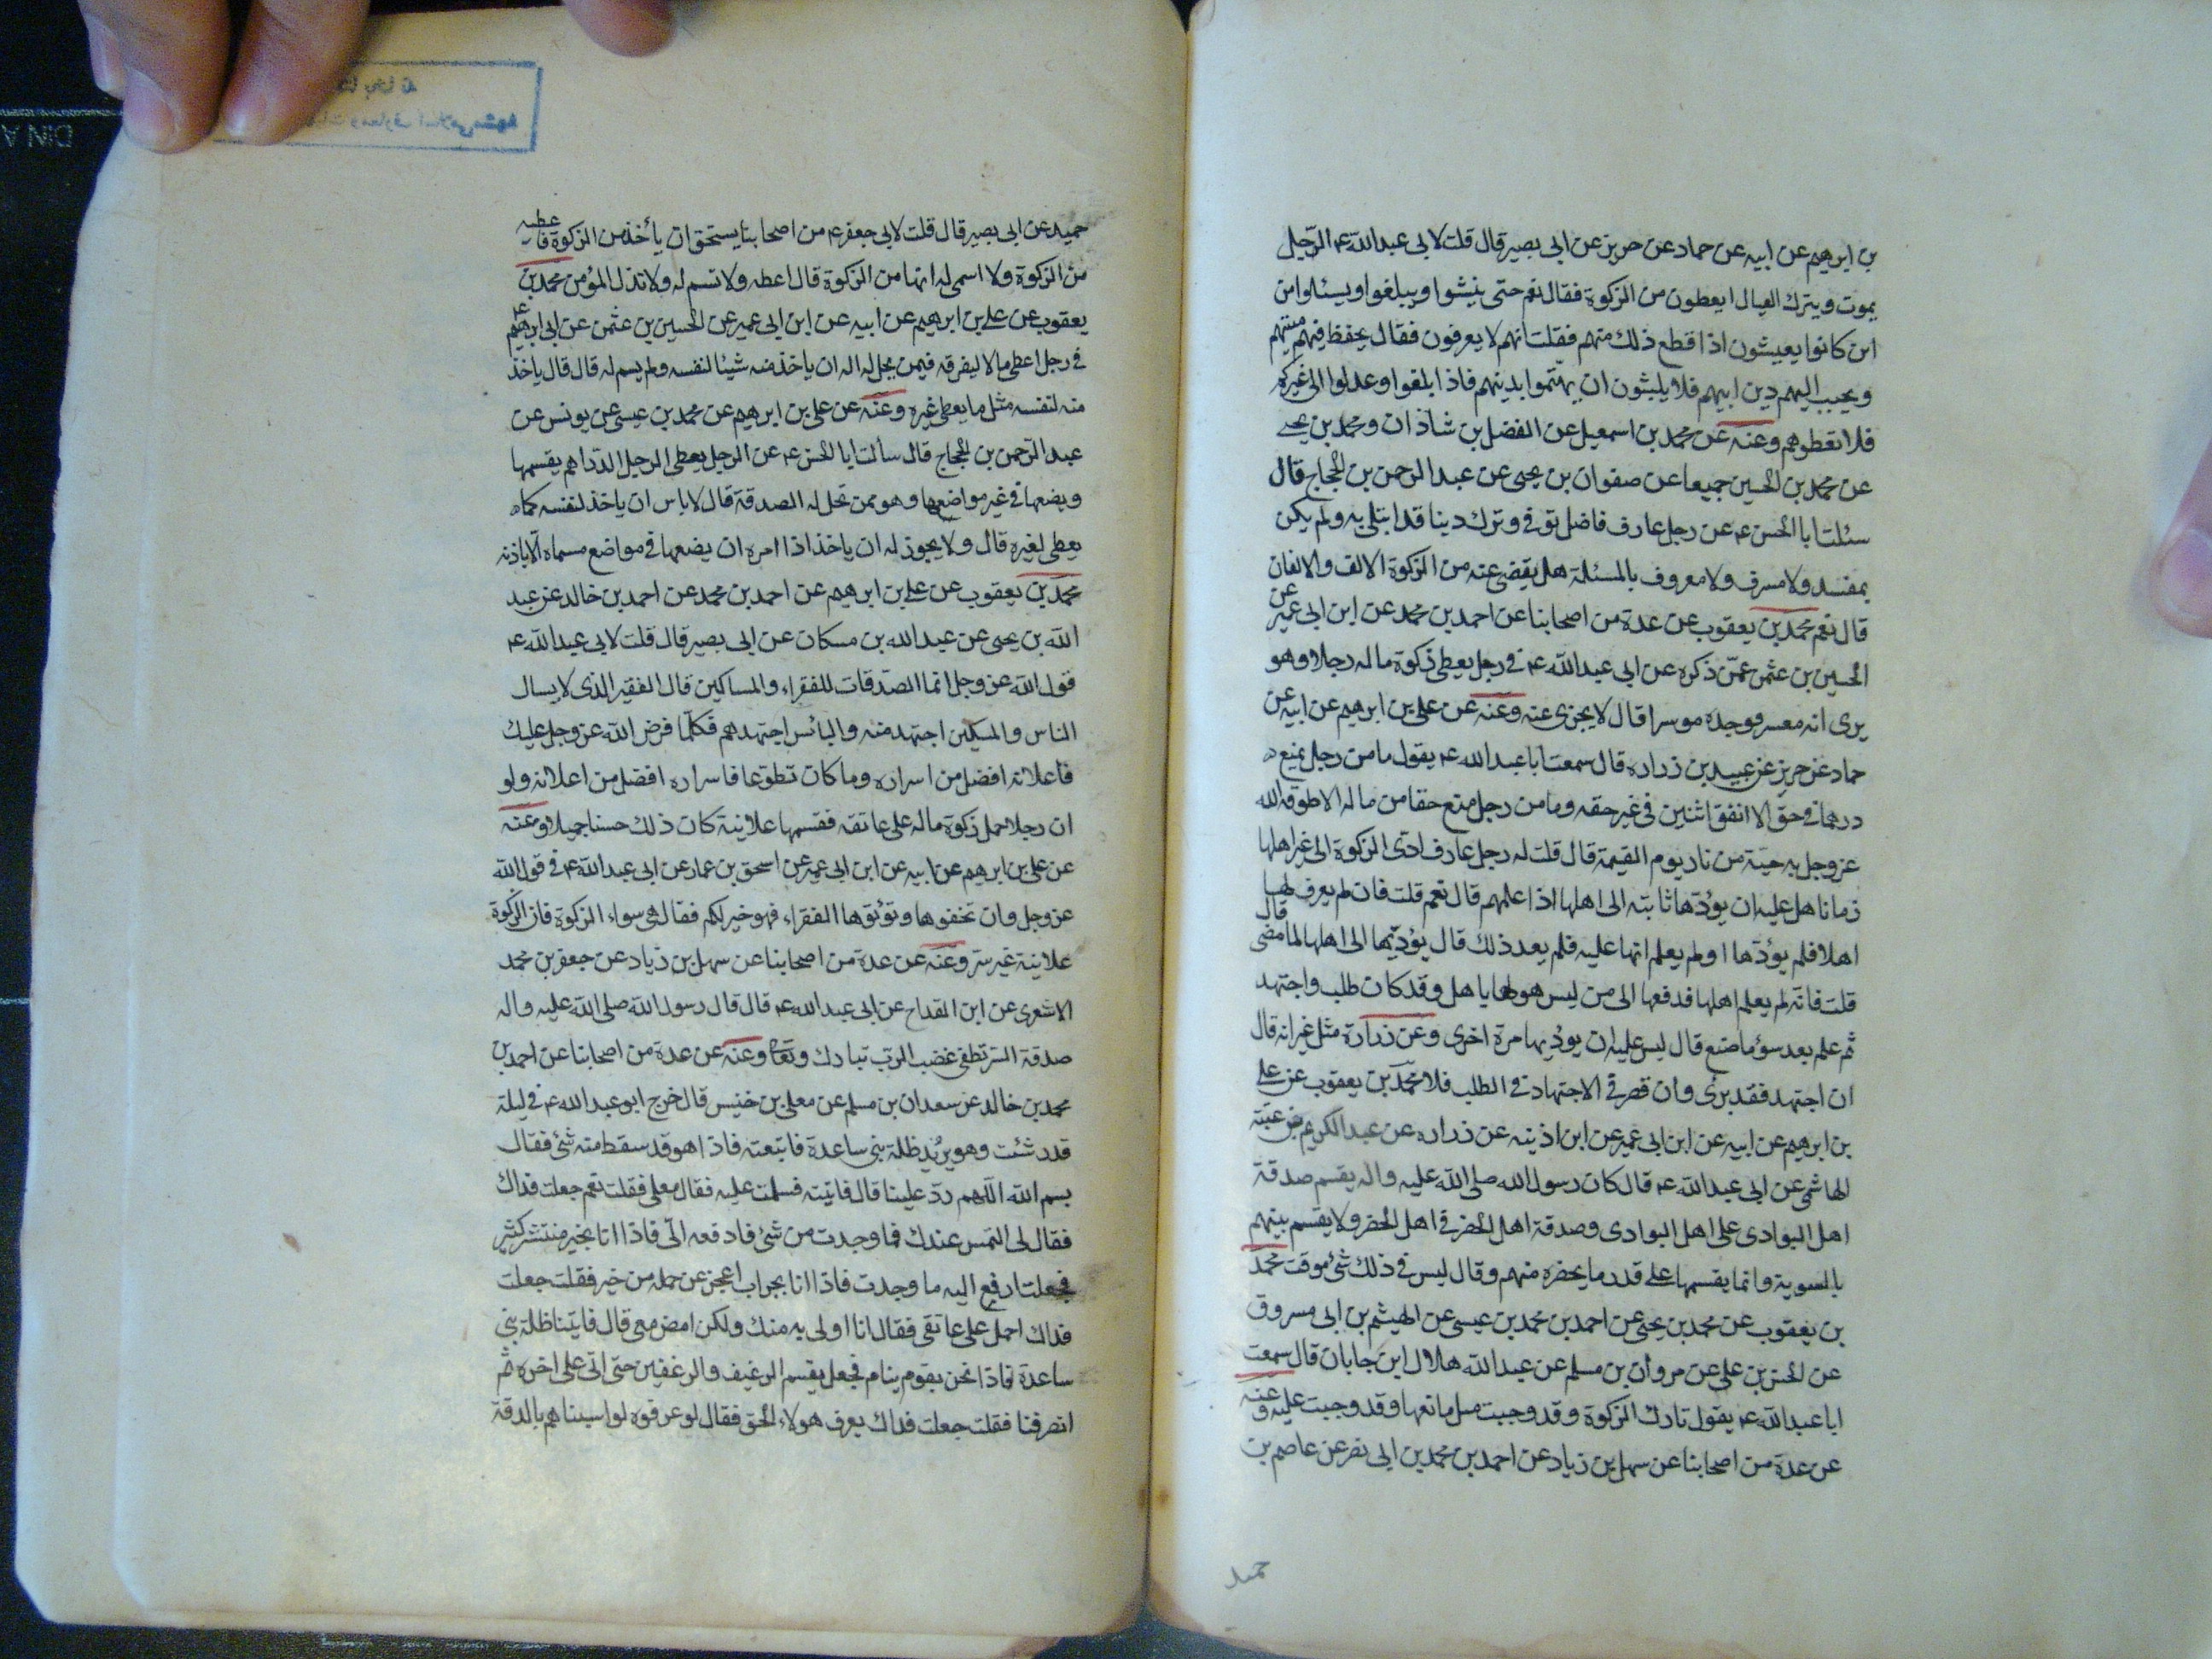 بن ابرهيم عن ابيه عن حماد عن حريز عن ابى بصير قال قلت لابى عبدالله ع الرّجل
يموت ويترك العيال ايعطون من الزكوة فقال نعم حتى ينشوا ويبلغوا ويسئلوا من
اين كانوا يعيشون اذا قطع ذلك منهم فقلت انهم لا يعرفون فقال يحفظ فيهم ميتهم
ويحبب اليهم دين ابيهم فلا يلبثون ان يهتموا بدينهم فاذا بلغوا وعدلوا الى غيركم
فلا تعطوهم وعنه عن محمد بن اسمعيل عن الفضل بن شاذان ومحمد بن يحيى
عن محمد بن الحسين جميعا عن صفوان بن يحيى عن عبد الرحمن بن الحجاج قال
سئلت ابا الحسن ع عن رجل عارف فاضل توفى وترك دينا قد ابتلى به ولم يكن
بمفسد ولا مسرف ولا معروف بالمسئلة هل يقضى عنه من الزكوة الالف والالفان
قال نعم محمد بن يعقوب عن عدة من اصحابنا عن احمد بن محمد عن ابن ابى عمير عن
الحسين بن عثمن عمّن ذكره عن ابى عبدالله ع فى رجل يعطى زكوة ماله رجلا وهو
يرى انه معسر فوجده موسرا قال لا يجزى عنه وعنه عن على بن ابرهيم عن ابيه عن
حماد عن حريز عن عبيد بن زراره قال سمعت ابا عبدالله ع يقول ما من رجل يمنع
درهما فى حق الا انفق اثنين فى غير حقه وما من رجل منع حقا من ماله الا طوقه الله
عز وجل به حيّة من نار يوم القيمة قال قلت له رجل عارف ادّى الزكوة الى غير اهلها
زمانا هل عليه ان يؤدّها ثانيه الى اهلها اذا علمهم قال نعم قلت فان لم يعرف لها
اهلا فلم يؤدّها او لم يعلم انها عليه فلم يعد ذلك قال يؤدّيها الى اهلها لما مضى قال
قلت فانّه لم يعلم اهلها فدفعها الى من ليس هو لها باهل وقد كان طلب واجتهد
ثم علم بعد سوء ما صنع قال ليس عليه ان يؤديها مرة اخرى وعن زرارة مثل غير انه قال
ان اجتهد فقد برئ وان قصر فى الاجتهاد فى الطلب فلا محمّد بن يعقوب عن على
بن ابرهيم عن ابيه عن ابن ابى عمير عن ابن اذينه عن زراره عن عبد الكريم بن عتبة
الهاشمى عن ابى عبدالله ع قال كان رسول الله صلى الله عليه واله يقسم صدقة
اهل البوادى على اهل البوادى وصدقة اهل الحضر فى اهل الحضر ولا يقسم بينهم
بالسوية وانما يقسمها على قدر ما يحضره منهم وقال ليس فى ذلك شئ موقت محمّد
بن يعقوب عن محمد بن يحيى عن احمد بن محمد بن عيسى عن الهيثم بن ابى مسروق
عن الحسن بن على عن مروان بن مسلم عن عبدالله هلال ابن جابان قال سمعت
ابا عبدالله ع يقول تارك الزكوة وقد وجبت مثل مانعها وقد وجبت عليه وعنه
عن عدة من اصحابنا عن سهل بن زياد عن احمد بن محمد بن ابى نصر عن عاصم بن
حميد
حميد عن ابى بصير قال قلت لابى جعفر ع من اصحابنا يستحق ان يأخذ من الزكوة فاعطيه
من الزكوة ولا اسمى له انها من الزكوة قال اعطه ولا تسم له ولا تذل المؤمن محمد بن
يعقوب عن على بن ابرهيم عن ابيه عن ابن ابى عمير عن الحسين بن عثمن عن ابى ابرهيم ع
فى رجل اعطى مالا ليفرقه فيمن يحل له اله ان ياخذ منه شيئا لنفسه ولم يسم له قال قال ياخذ
منه لنفسه مثل ما يعطى غيره وعنه عن على بن ابرهيم عن محمد بن عيسى عن يونس عن
عبد الرّحمن بن الحجاج قال سألت ابا الحسن ع عن الرجل يعطى الرجل الدّراهم يقسمها
ويضعها فى غير مواضعها وهو ممن تحل له الصدقة قال لا باس ان ياخذ لنفسه كما
يعطى لغيره قال ولا يجوز له ان ياخذ اذا امره ان يضعها فى مواضع مسماه الّا باذنه
محمّد بن يعقوب عن على بن ابرهيم عن احمد بن محمد عن احمد بن خالد عن عبد
الله بن يحيى عن عبدالله بن مسكان عن ابى بصير قال قلت لابى عبدالله ع
قول الله عز وجل انما الصّدقات للفقراء والمساكين قال الفقير الذى لا يسال
الناس والمسكين اجتهد منه والبائس اجتهدهم فكلّما فرض الله عز وجل عليك
فاعلانه افضل من اسراره وما كان تطوّعا فاسراره افضل من اعلانه ولو
ان رجلا حمل زكوة ماله على عاتقه فقسمها علانية كان ذلك حسنا جميلا وعنه
عن على بن ابرهيم عن ابيه عن ابن ابى عمير عن اسحق بن عمار عن ابى عبدالله ع فى قول الله
عز وجل وان تخفوها وتؤتوها الفقراء فهو خير لكم فقال هى سواء الزكوة فان الزكوة
علانية غير سرّ وعنه عن عدة من اصحابنا عن سهل بن زياد عن جعفر بن محمد
الاشعرى عن ابن القداح عن ابى عبدالله ع قال قال رسول الله صلى الله عليه واله
صدقة السرّ تطفى غضب الرب تبارك وتعا وعنه عن عدة من اصحابنا عن احمد بن
محمد بن خالد عن سعدان بن مسلم عن معلى بن خنيس قال خرج ابو عبدالله ع فى ليلة
قد رشّت وهو يريُد ظلة بنى ساعدة فاتبعته فاذا هو قد سقط منه شئ فقال
بسم الله اللّهم ردّ علينا قال فاتيته فسلمت عليه فقال معلى فقلت نعم جعلت فداك
فقال لى التمس عندك فما وجدت من شئ فادفعه الىّ فاذا انا بخبز منتشر كثير
فجعلت ارفع اليه ما وجدت فاذا انا بجراب اعجز عن حمله من خبز فقلت جعلت
فداك احمل على عاتقى فقال انا اولى به منك ولكن امض معى قال فاتينا ظلة بنى
ساعدة فاذا نحن بقوم ينام فجعل يقسم الرغيف والرغفين حتى اتى على اخره ثم
انصرفنا فقلت جعلت فداك يعرف هولاء الحق فقال لو عرفوه لواسيناهم بالدقة